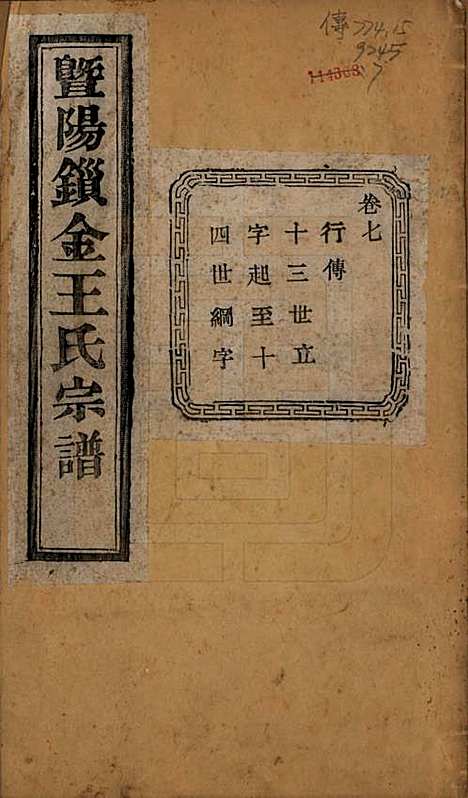 傳 774.15
9245
7
114368
卷七
行傳
十三世立
字起至十
四世綱字
暨陽鎖金王氏宗譜